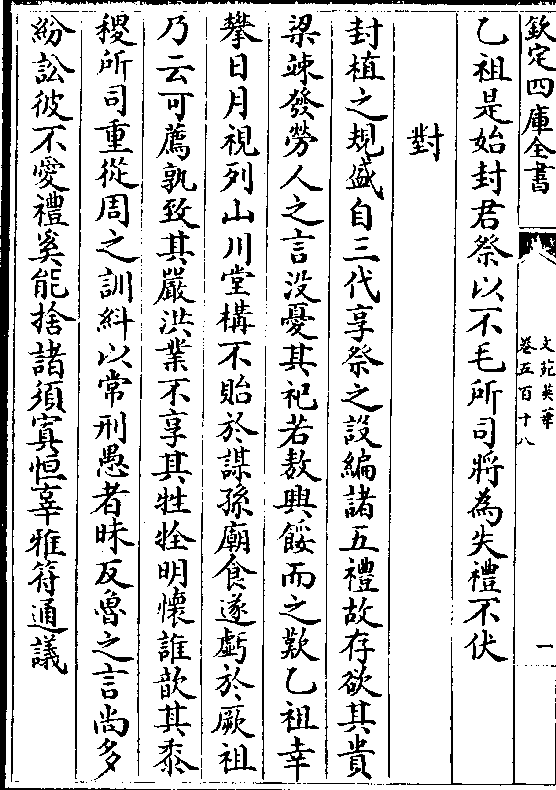 欽定四庫全書
文苑英華
卷五百十八
一
乙祖是始封君祭以不毛所司將為失禮不伏
對
封植之規盛自三代享祭之設編諸五禮故存欲其貴
梁竦發勞人之言没憂其祀若敖興餒而之歎乙祖幸
攀日月視列山川堂構不貽於謀孫廟食遂虧於厥祖
乃云可薦孰致其嚴洪業不享其牲牷明懷誰歆其黍
稷所司重從周之訓糾以常刑愚者昧反魯之言尚多
紛訟彼不愛禮奚能捨諸須寘恒辜雅符通議